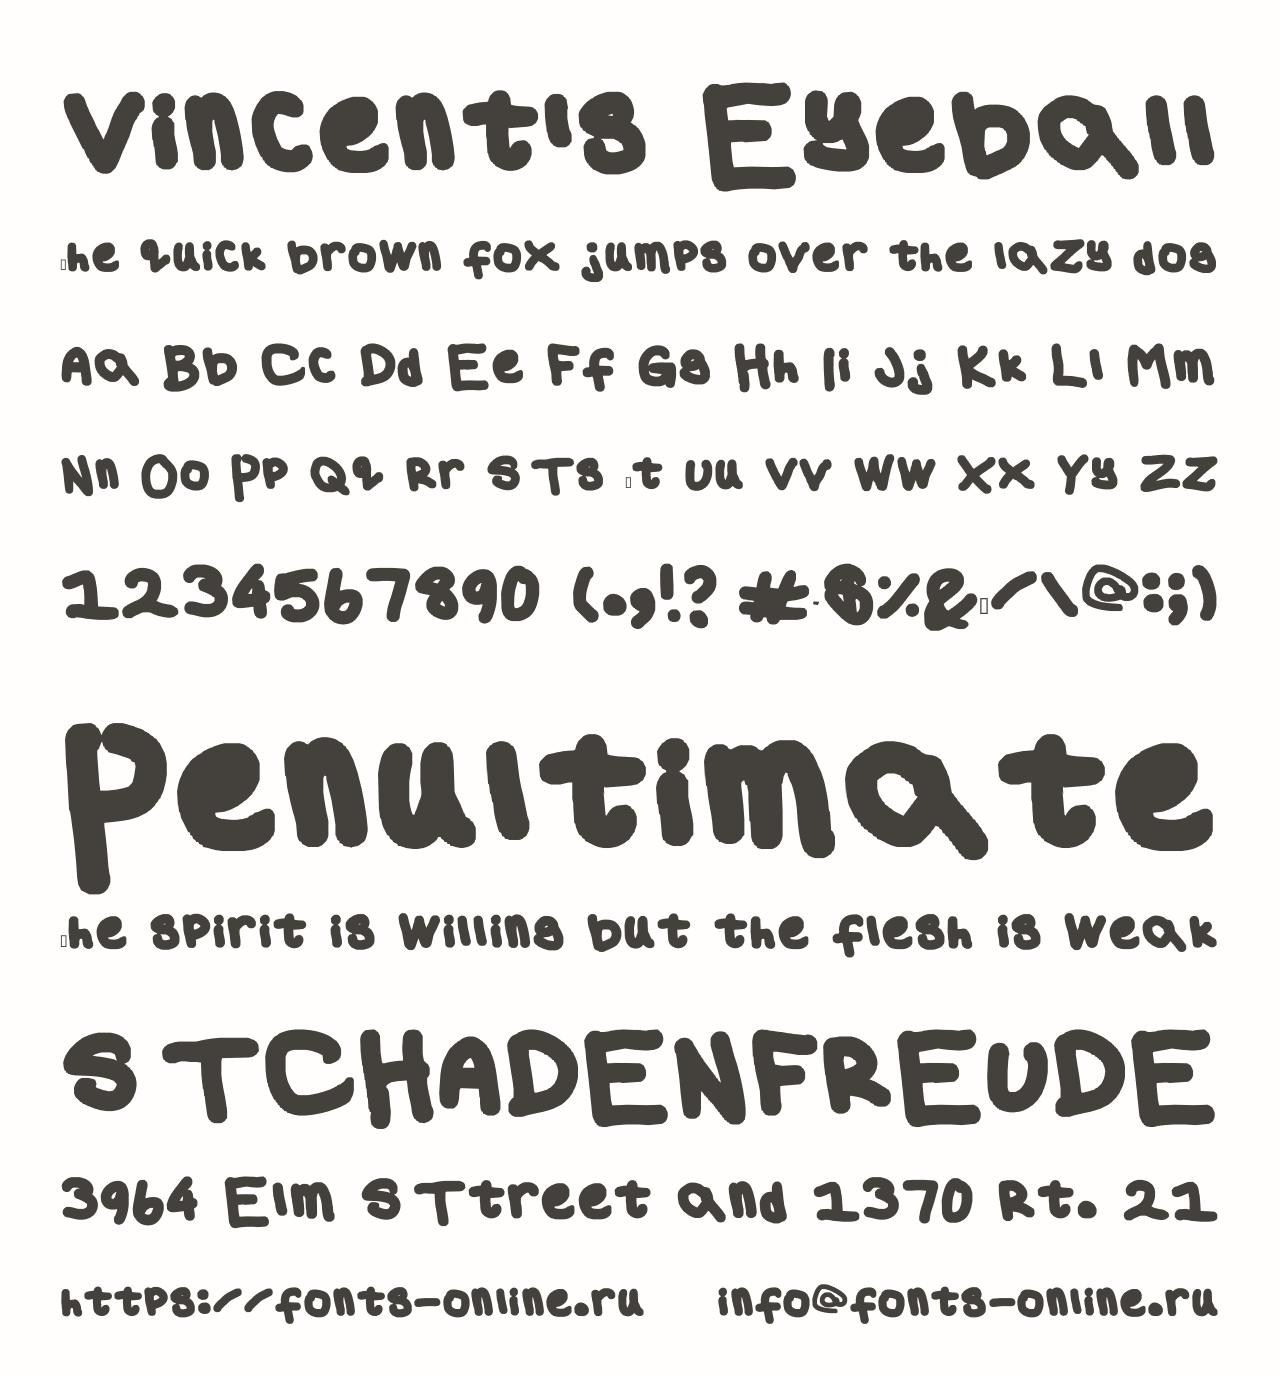 Vincent's Eyeball
▯he quick brown fox jumps over the lazy dog
Aa Bb Cc Dd Ee Ff Gg Hh Ii Jj Kk Ll Mm
Nn Oo Pp Qq Rr S Ts ▯t uu vv Ww Xx Yy Zz
1234567890 (.,!? #-$%&▯/\@:;)
Penultimate
▯he spirit is willing but the flesh is weak
S TCHADENFREUDE
3964 Elm S Ttreet and 1370 Rt. 21
https://fonts-online.ru info@fonts-online.ru